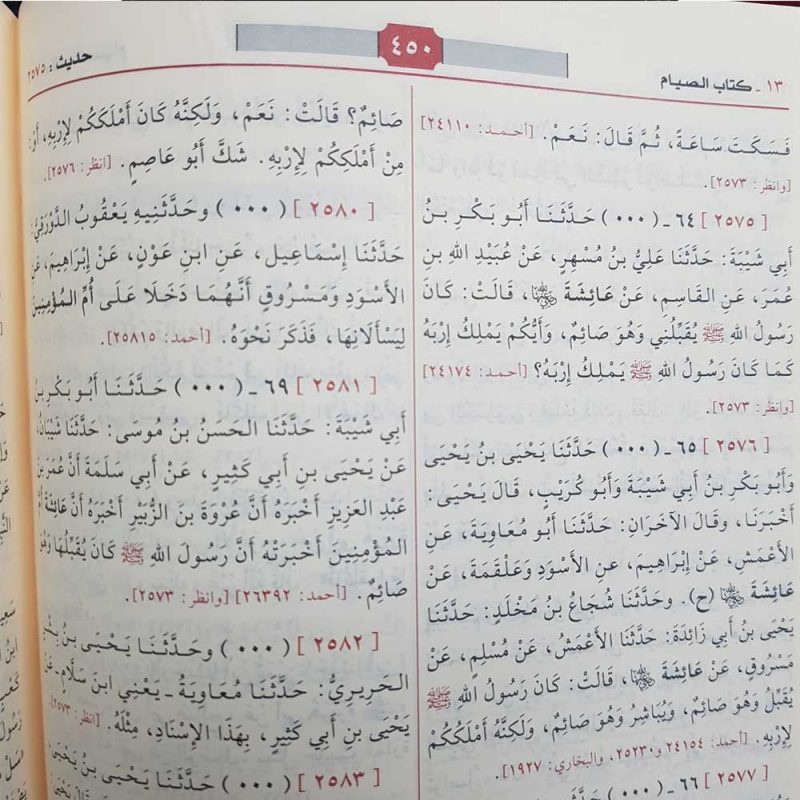 ١٣ ـ كتاب الصيام
٤٥٠
حديث: ٢٥٧٥
فَسَكَتَ سَاعَةً، ثُمَّ قَالَ: نَعَمْ. [أحمد: ٢٤١١٠]
[وانظر: ٢٥٧٣].
[٢٥٧٥] ٦٤ ـ (٠٠٠) حَدَّثَنَا أَبُو بَكْرِ بنُ
أَبِي شَيْبَةَ: حَدَّثَنَا عَلِيُّ بنُ مُسْهِرٍ، عَنْ عُبَيْدِ اللهِ بنِ
عُمَرَ، عَنِ القَاسِمِ، عَنْ عَائِشَةَ ﵂، قَالَتْ: كَانَ
رَسُولُ اللهِ ﷺ يُقَبِّلُنِي وَهُوَ صَائِمٌ، وَأَيُّكُمْ يَمْلِكُ إِرْبَهُ
كَمَا كَانَ رَسُولُ اللهِ ﷺ يَمْلِكُ إِرْبَهُ؟ [أحمد: ٢٤١٧٤]
[وانظر: ٢٥٧٣].
[٢٥٧٦] ٦٥ ـ (٠٠٠) حَدَّثَنَا يَحْيَى بنُ يَحْيَى
وَأَبُو بَكْرِ بنُ أَبِي شَيْبَةَ وَأَبُو كُرَيْبٍ، قَالَ يَحْيَى:
أَخْبَرَنَا، وقَالَ الآخَرَانِ: حَدَّثَنَا أَبُو مُعَاوِيَةَ، عَنِ
الأَعْمَشِ، عَنْ إِبْرَاهِيمَ، عَنِ الأَسْوَدِ وَعَلْقَمَةَ، عَنْ
عَائِشَةَ ﵂ (ح). وحَدَّثَنَا شُجَاعُ بنُ مَخْلَدٍ: حَدَّثَنَا
يَحْيَى بنُ أَبِي زَائِدَةَ: حَدَّثَنَا الأَعْمَشُ، عَنْ مُسْلِمٍ، عَنْ
مَسْرُوقٍ، عَنْ عَائِشَةَ ﵂، قَالَتْ: كَانَ رَسُولُ اللهِ ﷺ
يُقَبِّلُ وَهُوَ صَائِمٌ، وَيُبَاشِرُ وَهُوَ صَائِمٌ، وَلَكِنَّهُ أَمْلَكُكُمْ
لِإِرْبِهِ. [أحمد: ٢٤١٥٤ و٢٥٢٣٠، والبخاري: ١٩٢٧].
[٢٥٧٧] ٦٦ ـ (٠٠٠) حَدَّثَنَا
صَائِمٌ؟ قَالَتْ: نَعَمْ، وَلَكِنَّهُ كَانَ أَمْلَكَكُمْ لِإِرْبِهِ، أَوْ:
مِنْ أَمْلَكِكُمْ لِإِرْبِهِ. شَكَّ أَبُو عَاصِمٍ. [انظر: ٢٥٧٦].
[٢٥٨٠] (٠٠٠) وحَدَّثَنِيهِ يَعْقُوبُ الدَّوْرَقِيُّ:
حَدَّثَنَا إِسْمَاعِيل، عَنِ ابنِ عَوْنٍ، عَنْ إِبْرَاهِيمَ، عَنِ
الأَسْوَدِ وَمَسْرُوقٍ أَنَّهُمَا دَخَلَا عَلَى أُمِّ المُؤْمِنِينَ
لِيَسْأَلَانِهَا، فَذَكَرَ نَحْوَهُ. [أحمد: ٢٥٨١٥].
[٢٥٨١] ٦٩ ـ (٠٠٠) حَدَّثَنَا أَبُو بَكْرِ بنُ
أَبِي شَيْبَةَ: حَدَّثَنَا الحَسَنُ بنُ مُوسَى: حَدَّثَنَا شَيْبَانُ،
عَنْ يَحْيَى بنِ أَبِي كَثِيرٍ، عَنْ أَبِي سَلَمَةَ أَنَّ عُمَرَ بنَ
عَبْدِ العَزِيزِ أَخْبَرَهُ أَنَّ عُرْوَةَ بنَ الزُّبَيْرِ أَخْبَرَهُ أَنَّ عَائِشَةَ أُمَّ
المُؤْمِنِينَ أَخْبَرَتْهُ أَنَّ رَسُولَ اللهِ ﷺ كَانَ يُقَبِّلُهَا وَهُوَ
صَائِمٌ. [أحمد: ٢٦٣٩٢] [وانظر: ٢٥٧٣].
[٢٥٨٢] (٠٠٠) وحَدَّثَنَا يَحْيَى بنُ بِشْرٍ
الحَرِيرِيُّ: حَدَّثَنَا مُعَاوِيَةُ ـ يَعْنِي ابنَ سَلَّامٍ ـ عَنْ
يَحْيَى بنِ أَبِي كَثِيرٍ، بِهَذَا الإِسْنَادِ، مِثْلَهُ. [انظر: ٢٥٧٣].
[٢٥٨٣] (٠٠٠) حَدَّثَنَا يَحْيَى بنُ يَحْيَى